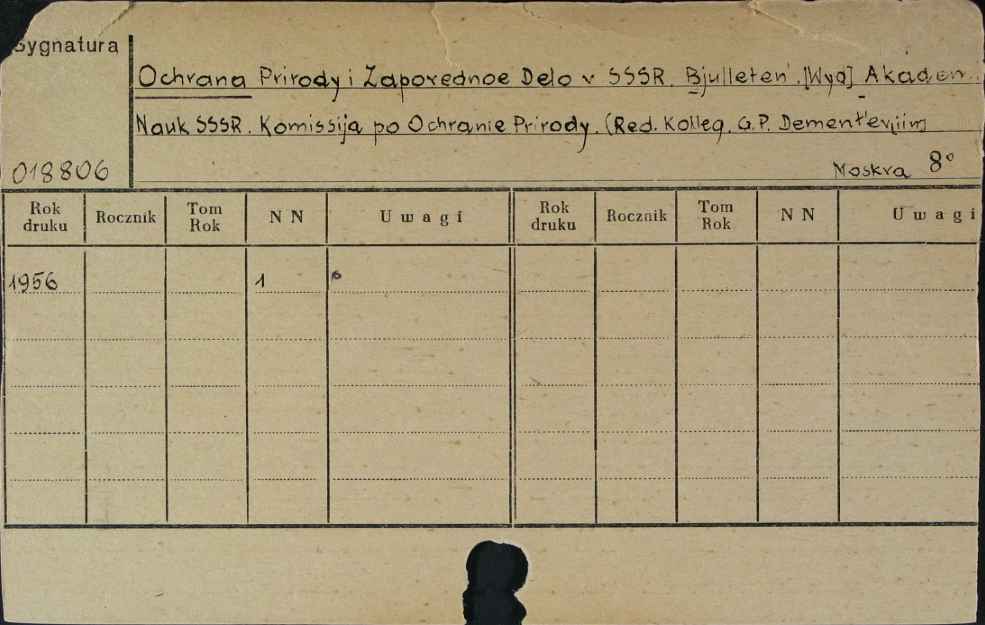 Sygnatura
Ochrana Prirody i Zapovednoe Delo v SSSR. Bjulleten'. [Wyd] Akadem.
Nauk SSSR. Komissija po Ochranie Prirody. (Red. Kolleg. G.P. Dement'ev i in)
018806 Moskva 8°
Rok druku Rocznik Tom Rok N N Uwagi Rok druku Rocznik Tom Rok N N Uwagi
1956 1